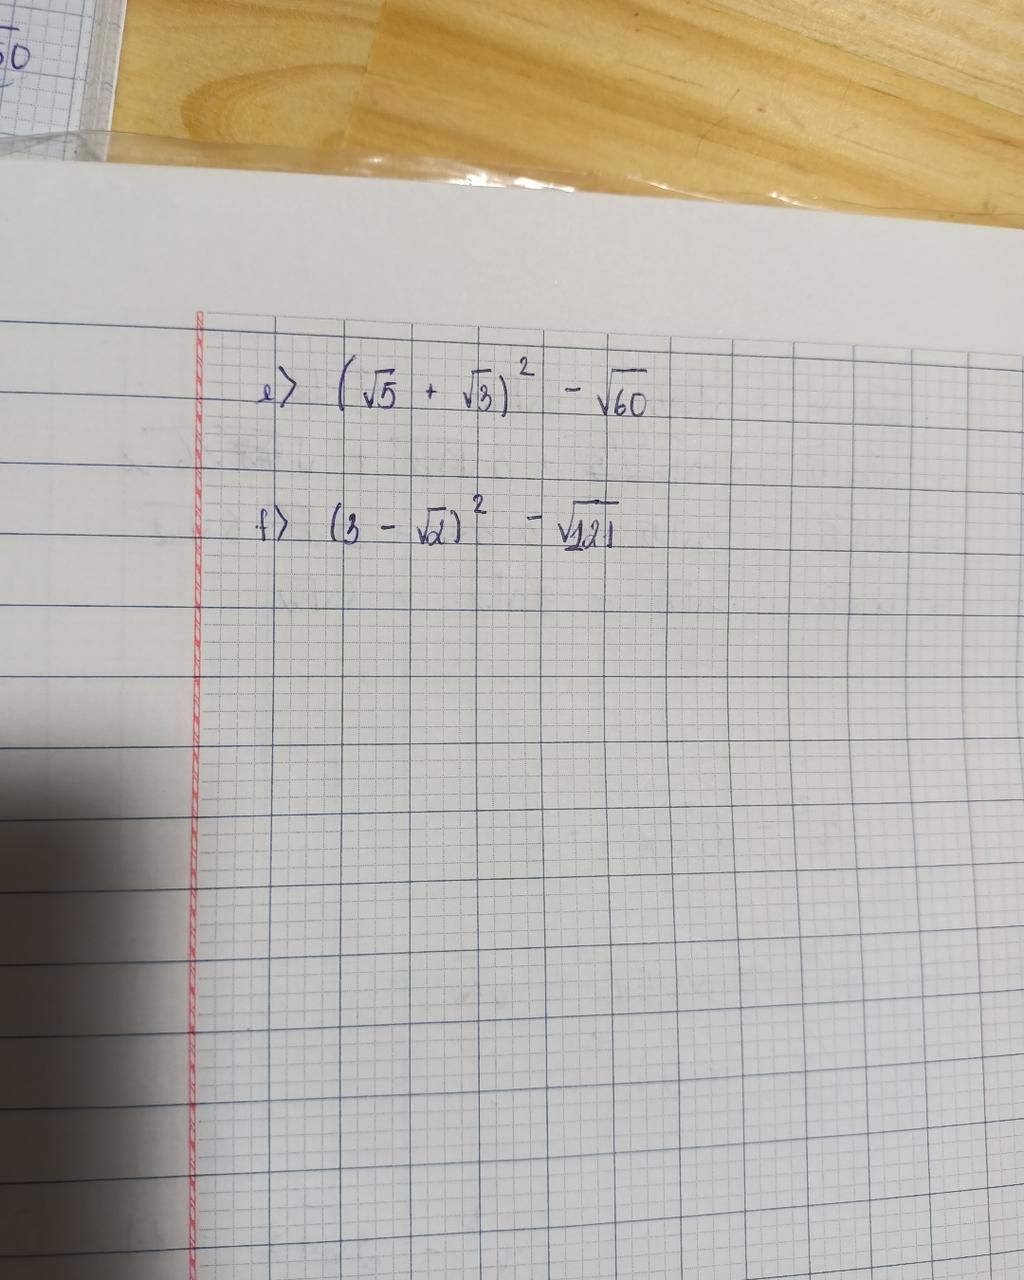 50
e> (√5 + √3)² - √60
f> (3 - √2)² - √121